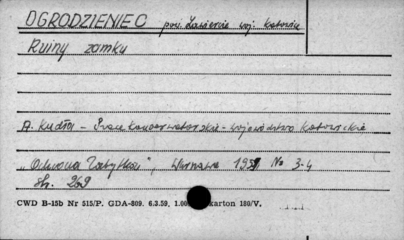 OGRODZIENIEC pow. Zawiercie woj. Katowice
Ruiny zamku
A. Kudła - Prace konserwatorskie - województwo Katowickie
„Ochrona Zabytków", Warszawa No 3-4
str. 269
CWD B-15b Nr 515/P. GDA-809. 6.3.59, karton 180/V.